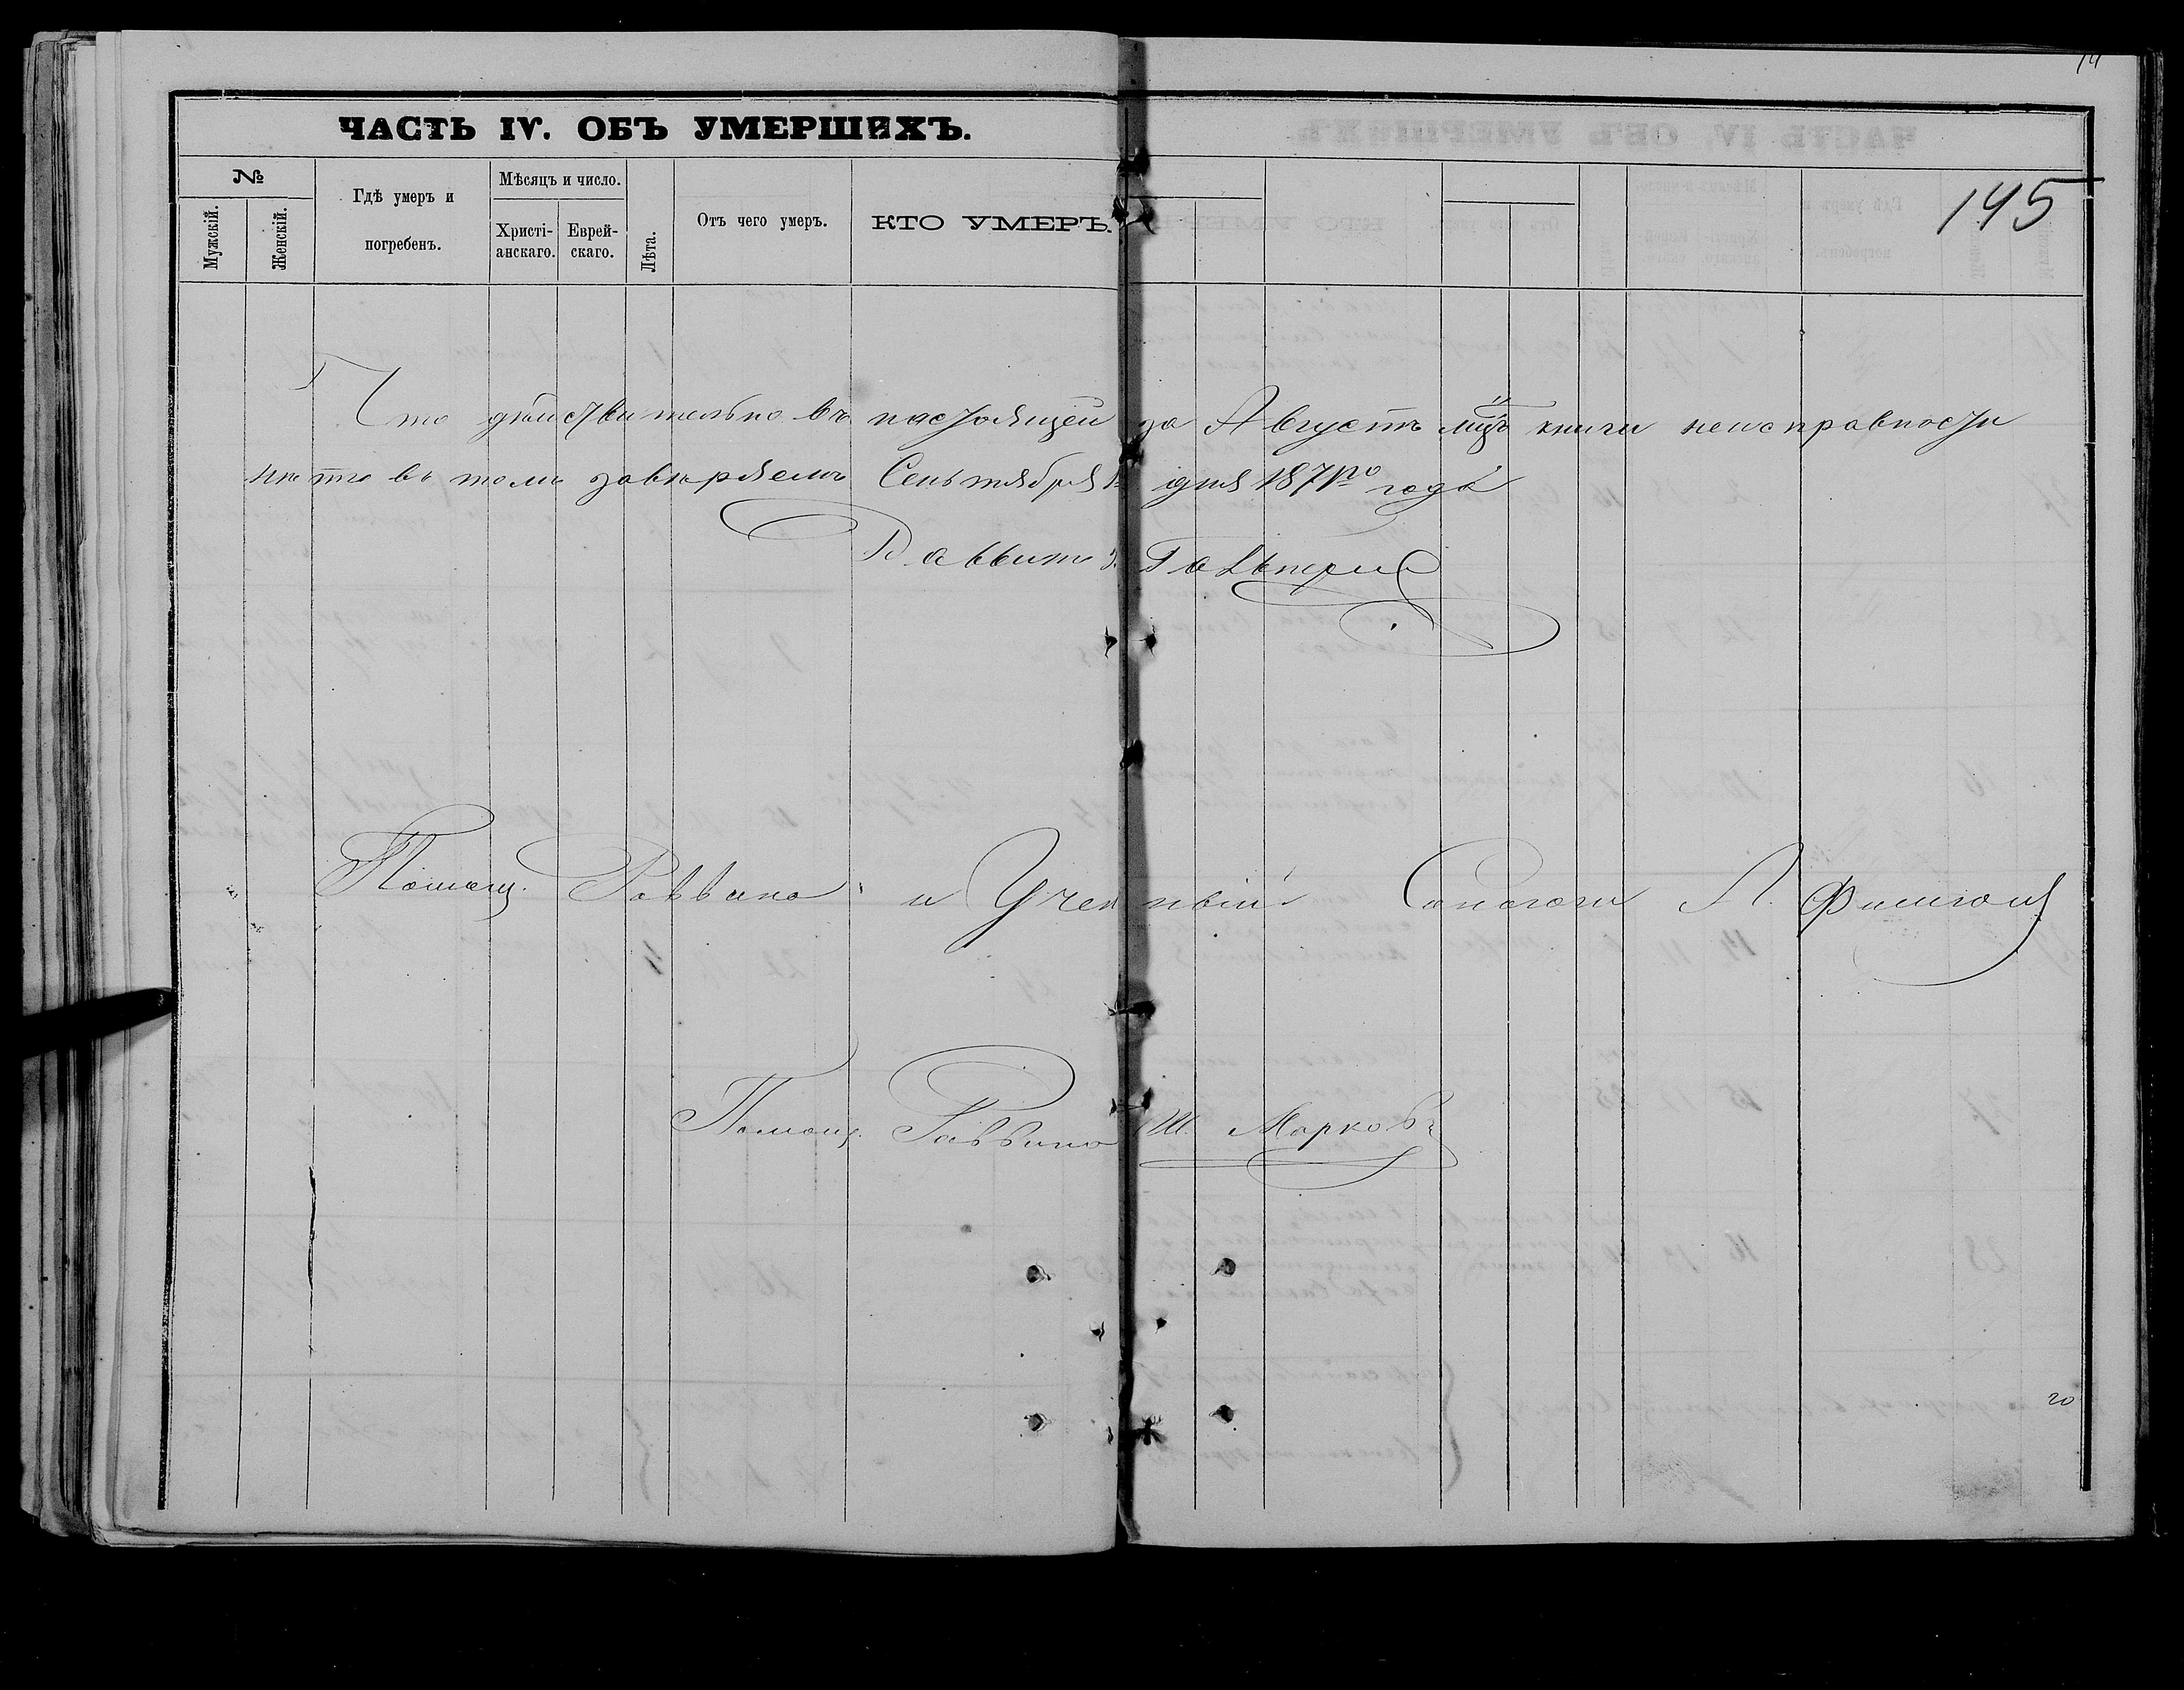 ЧАСТЬ IV. ОБЪ УМЕРШИХЪ.
№
Мужскій.
Женскій.
Гдѣ умеръ и
погребенъ.
Мѣсяцъ и число.
Христі-
анскаго.
Еврей-
скаго.
Лѣта.
Отъ чего умеръ.
КТО УМЕРЪ.
145
Что дѣйствительно въ настоящей за Августъ мцъ книги неисправности
нѣтъ въ томъ завѣряемъ Сентября 1 дня 1871го года
Раввинъ Гальперин
Помощ. Раввина и Ученный Синагоги Л.
Помощ. Раввина Ш. Марковъ
20